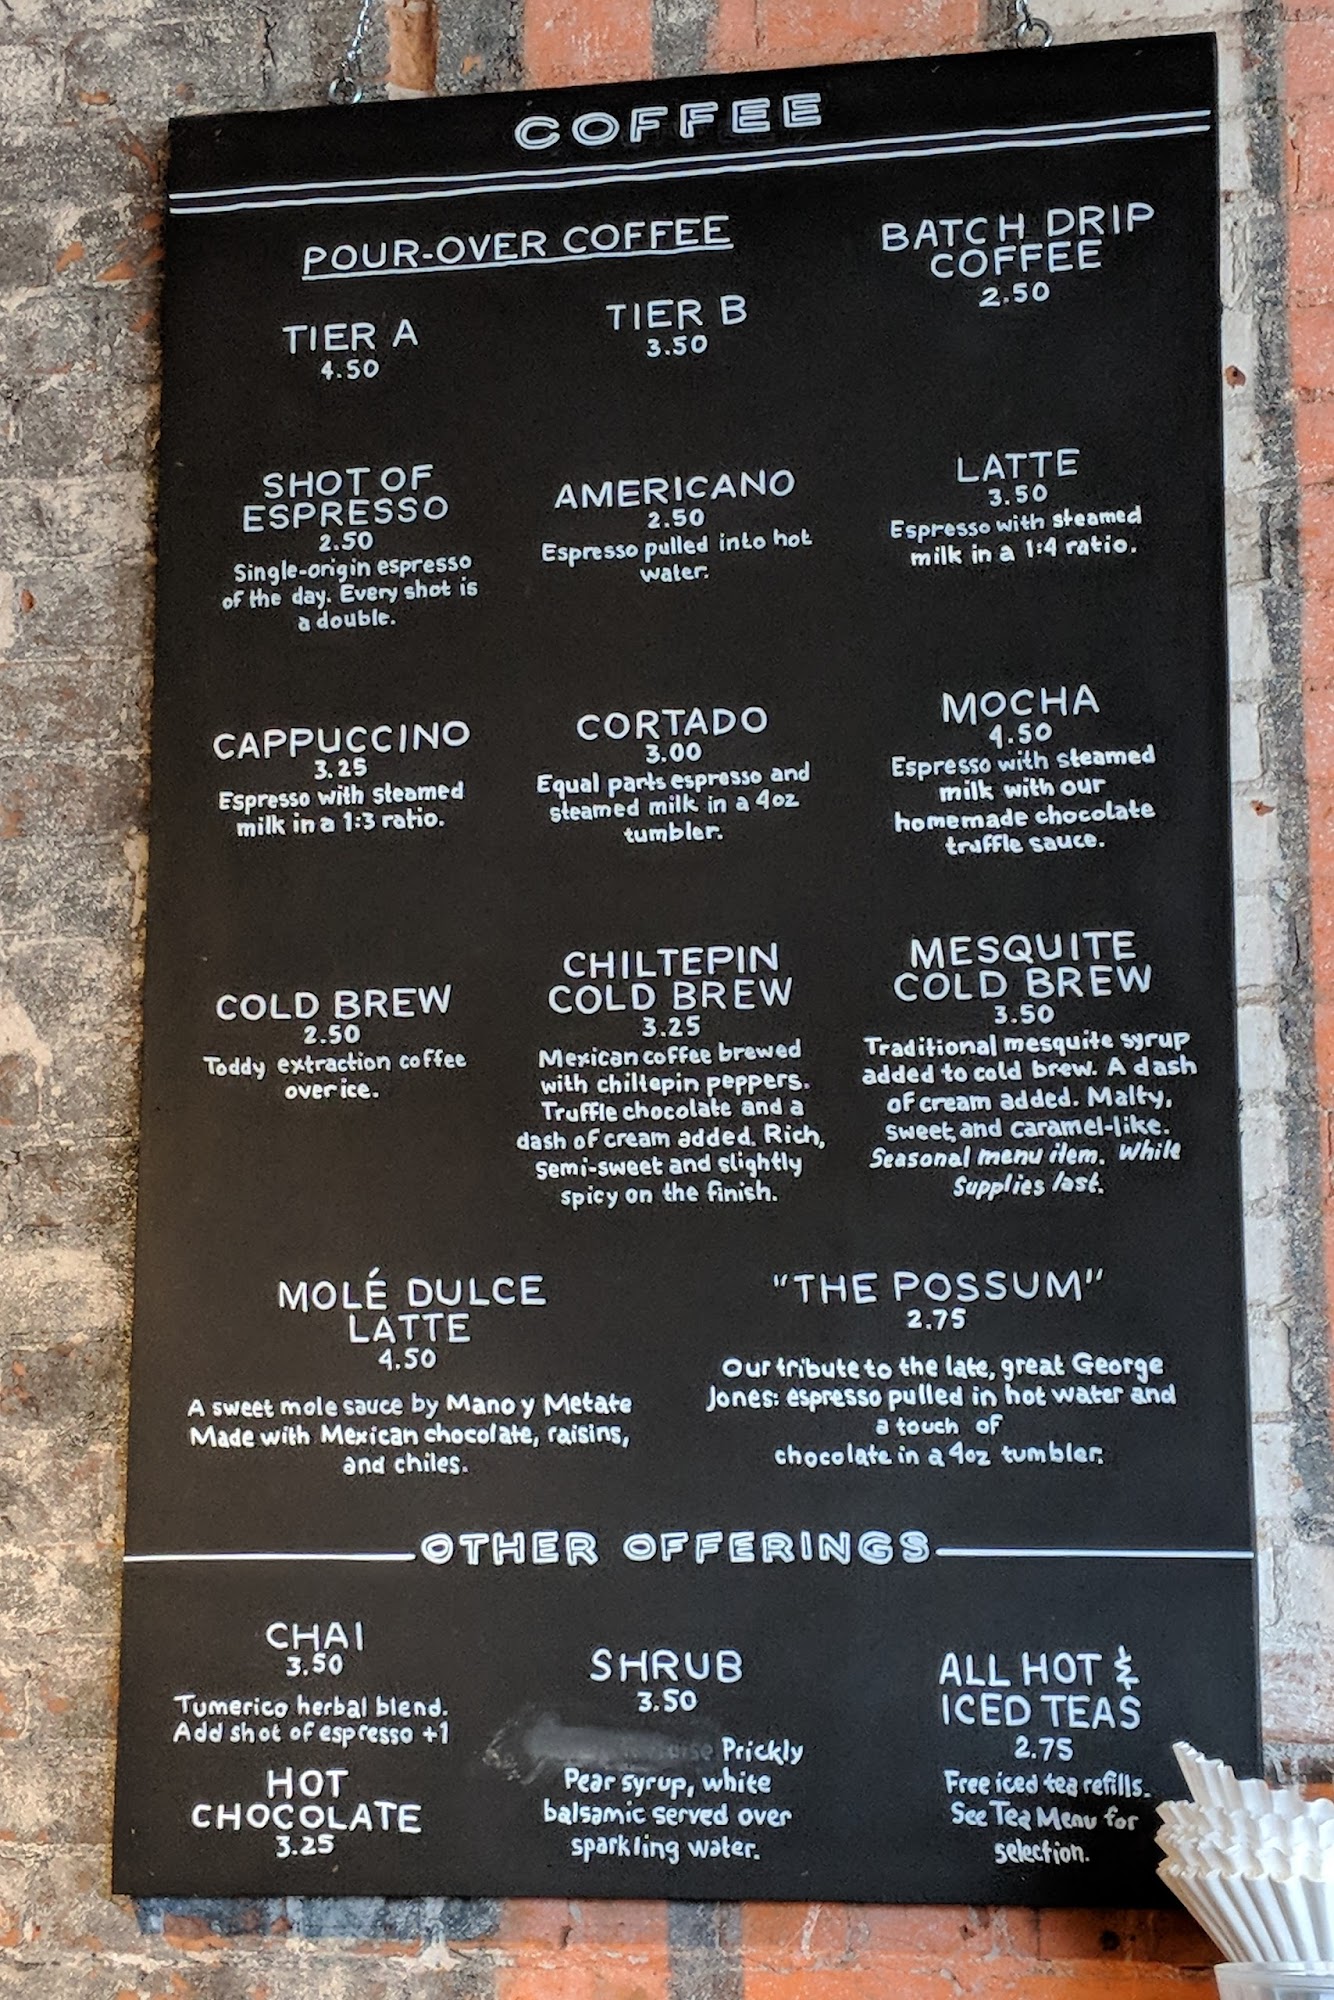 COFFEE
POUR-OVER COFFEE
TIER A
4.50
TIER B
3.50
BATCH DRIP
COFFEE
2.50
SHOT OF
ESPRESSO
2.50
Single-origin espresso
of the day. Every shot is
a double.
AMERICANO
2.50
Espresso pulled into hot
water.
LATTE
3.50
Espresso with steamed
milk in a 1:4 ratio.
CAPPUCCINO
3.25
Espresso with steamed
milk in a 1:3 ratio.
CORTADO
3.00
Equal parts espresso and
steamed milk in a 4oz
tumbler.
MOCHA
4.50
Espresso with steamed
milk with our
homemade chocolate
truffle sauce.
COLD BREW
2.50
Toddy extraction coffee
over ice.
CHILTEPIN
COLD BREW
3.25
Mexican coffee brewed
with chiltepin peppers.
Truffle chocolate and a
dash of cream added. Rich,
semi-sweet and slightly
spicy on the finish.
MESQUITE
COLD BREW
3.50
Traditional mesquite syrup
added to cold brew. A dash
of cream added. Malty,
sweet, and caramel-like.
Seasonal menu item. While
supplies last.
MOLÉ DULCE
LATTE
4.50
A sweet mole sauce by Mano y Metate
Made with Mexican chocolate, raisins,
and chiles.
"THE POSSUM"
2.75
Our tribute to the late, great George
Jones: espresso pulled in hot water and
a touch of
chocolate in a 4oz tumbler.
OTHER OFFERINGS
CHAI
3.50
Tumerico herbal blend.
Add shot of espresso +1
HOT
CHOCOLATE
3.25
SHRUB
3.50
Prickly
Pear syrup, white
balsamic served over
sparkling water.
ALL HOT &
ICED TEAS
2.75
Free iced tea refills.
See Tea Menu for
selection.